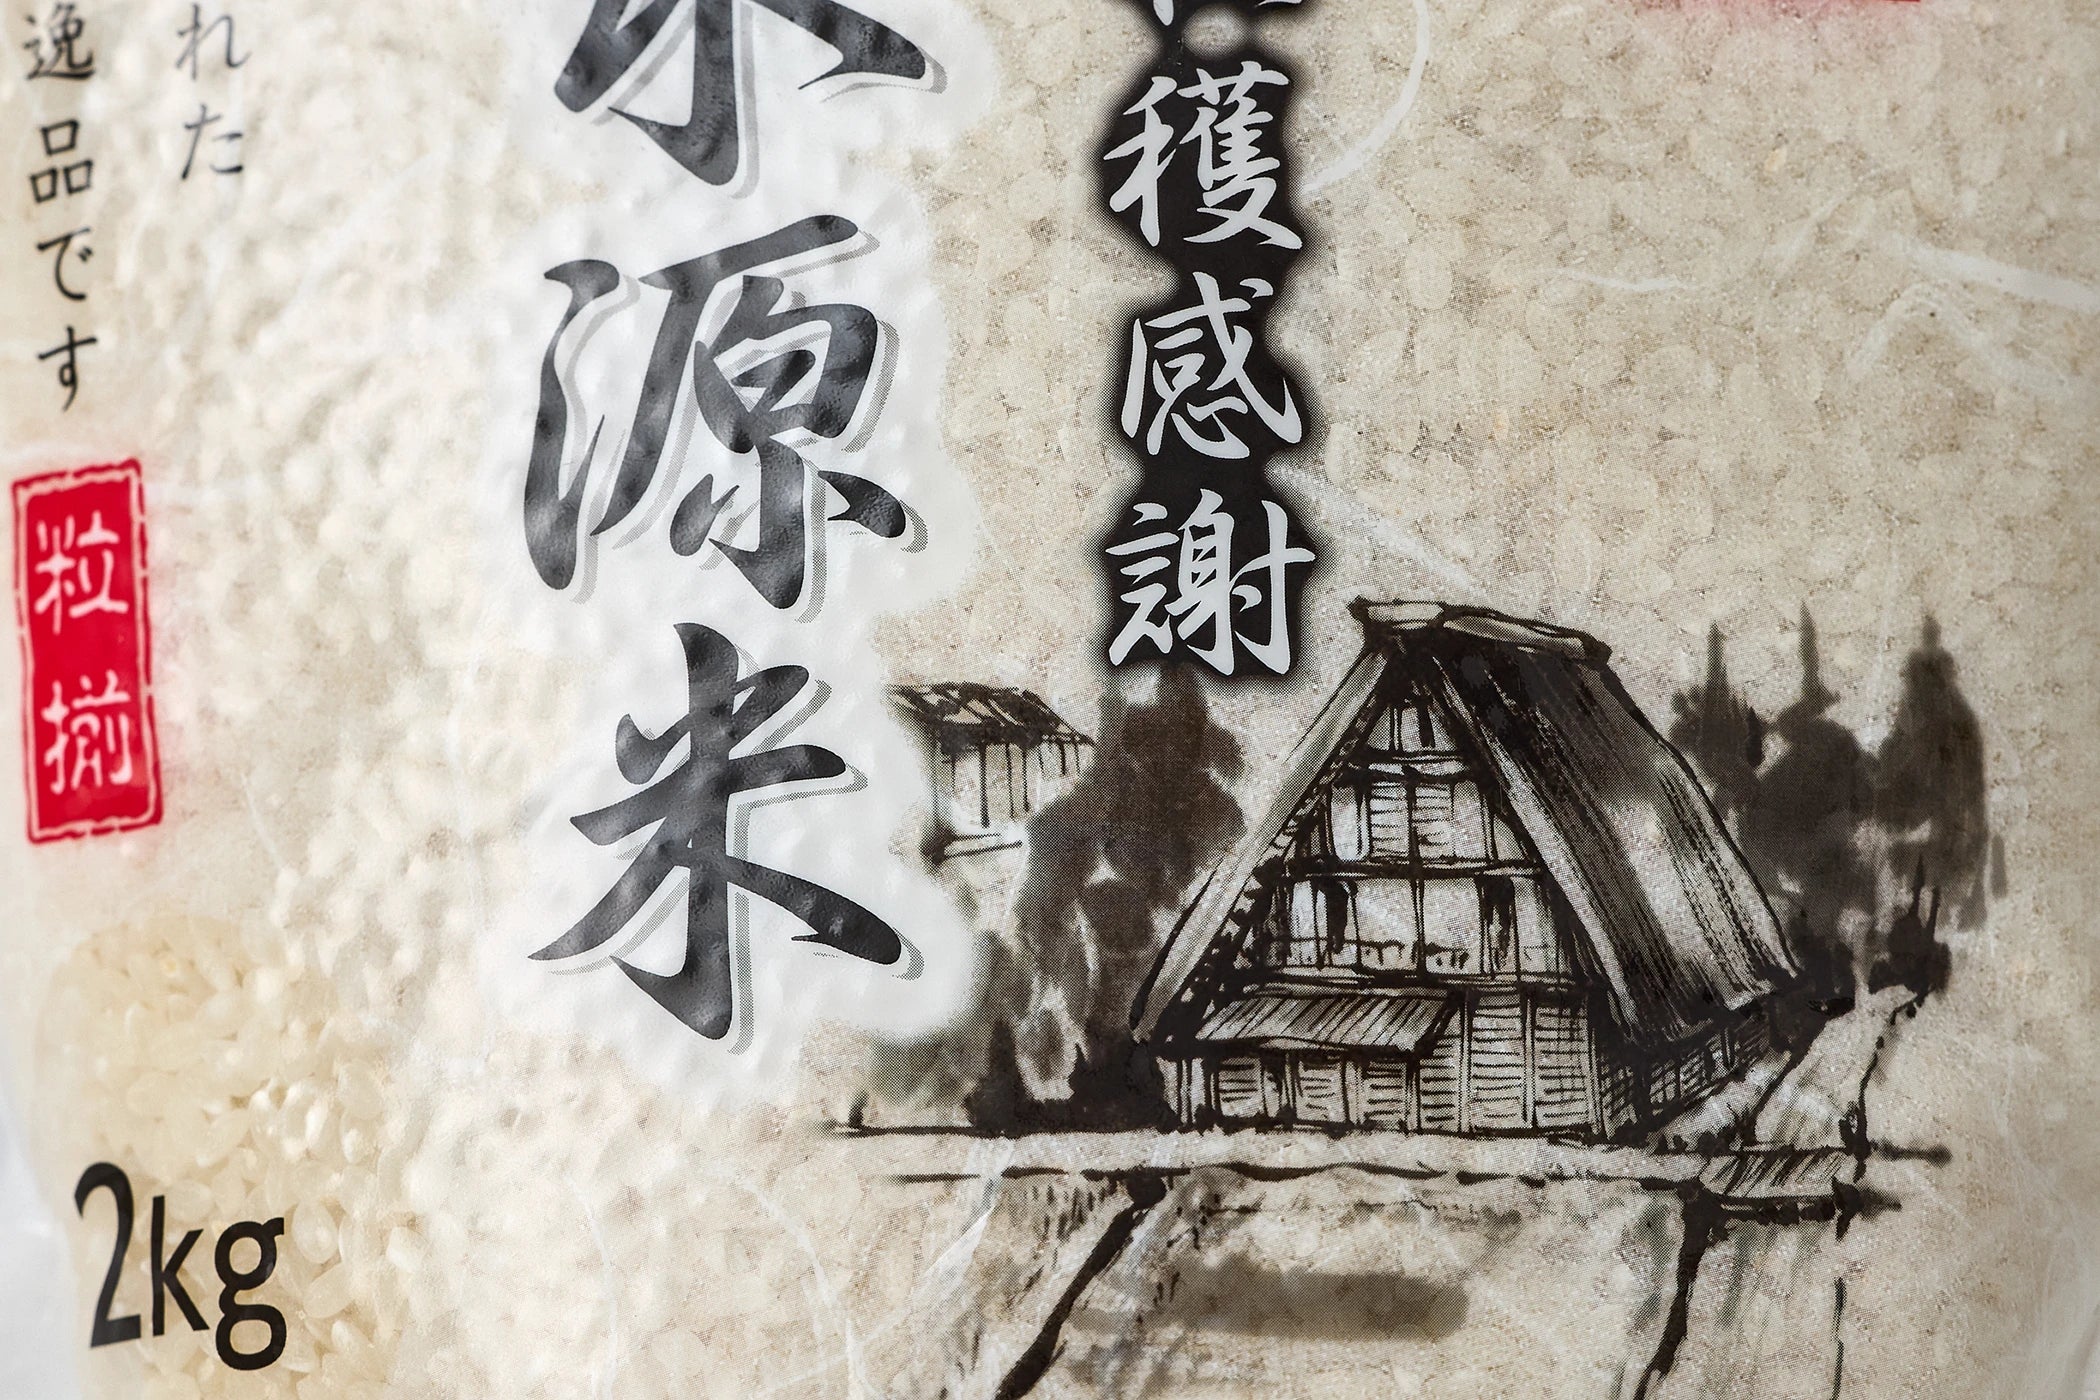 穫感謝
源米
れた
逸品です
粒揃
2kg